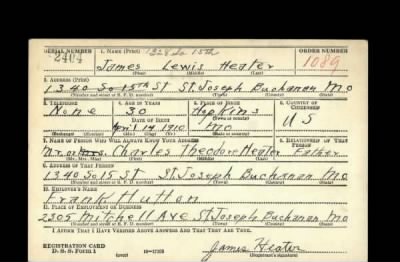 SERIAL NUMBER 1. NAME (Print) 1328 So 15th ORDER NUMBER
2404 James Lewis Heater 1089
(First) (Middle) (Last)
2. ADDRESS (Print)
1340 So 15th St St. Joseph Buchanan Mo
3. TELEPHONE 4. AGE IN YEARS 5. PLACE OF BIRTH 6. COUNTRY OF CITIZENSHIP
None 30 Hopkins U S
DATE OF BIRTH
April 14 1910 Mo
7. NAME OF PERSON WHO WILL ALWAYS KNOW YOUR ADDRESS 8. RELATIONSHIP OF THAT PERSON
Mr. Charles Theodore Heater Father
(Mr., Mrs., Miss) (First) (Middle) (Last)
9. ADDRESS OF THAT PERSON
1340 So 15 St St. Joseph Buchanan Mo
10. EMPLOYER'S NAME
Frank Hutton
11. PLACE OF EMPLOYMENT OR BUSINESS
2305 Mitchell Ave St. Joseph Buchanan Mo
I AFFIRM THAT I HAVE VERIFIED ABOVE ANSWERS AND THAT THEY ARE TRUE.
REGISTRATION CARD
D. S. S. Form 1 (over) James Heater
(Registrant's signature)